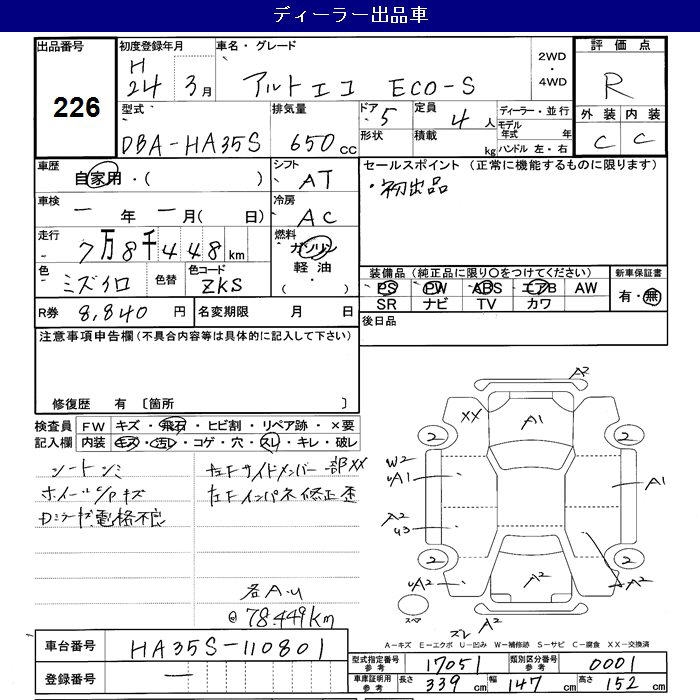 ディーラー出品車
出品番号
226
初度登録年月
H
24 3月
車名・グレード
アルトエコ ECO-S
2WD
・
4WD
評価点
R
外装 内装
C C
型式
DBA-HA35S
排気量
650 cc
ドア 5
形状
定員 4人
積載 kg
ディーラー・並行
モデル年式 年
ハンドル 左・右
車歴
自家用・( )
シフト
AT
セールスポイント (正常に機能するものに限ります)
・初出品
車検
ー 年 ー月(日)
冷房
AC
走行
7万8千448km
燃料
ガソリン
軽油・
( )
色
ミズイロ
色替
色コード
ZKS
装備品(純正品に限り○をつけてください)
PS PW ABS エアB AW
SR ナビ TV カワ
新車保証書
有・無
R券 8,840 円
名変期限 月 日
後日品
注意事項申告欄(不具合内容等は具体的に記入して下さい)
修復歴 有 〔箇所 〕
検査員記入欄
FW キズ・飛石・ヒビ割・リペア跡・×要
内装 キズ・汚レ・コゲ・穴・スレ・キレ・破レ
シートシミ
ホイールC/Pキズ
Dミラーキズ電格不良
左Fサイドメンバー一部XX
左Fインパネ修正歪
若A.U
@78.449km
A2
XX
A1
2
2
W2
A1
A1
A2
U3
2
2
UA2
A2
A2
スペア
スレ A2
A-キズ E-エクボ U-凹み W-補修跡 S-サビ C-腐食 XX-交換済
車台番号
HA35S-110801
登録番号
ー
型式指定番号
参考
17051
類別区分番号
参考
0001
車庫証明用
参考
長さ 339 cm 幅 147 cm 高さ 152 cm